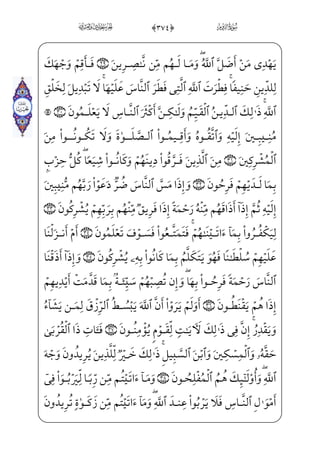 ﴿٣٧٤﴾
يَهْدِى مَنْ أَضَلَّ ٱللَّهُ ۖ وَمَا لَهُم مِّن نَّـٰصِرِينَ ۝ فَأَقِمْ وَجْهَكَ
لِلدِّينِ حَنِيفًا ۚ فِطْرَتَ ٱللَّهِ ٱلَّتِى فَطَرَ ٱلنَّاسَ عَلَيْهَا ۚ لَا تَبْدِيلَ لِخَلْقِ
ٱللَّهِ ۚ ذَٰلِكَ ٱلدِّينُ ٱلْقَيِّمُ وَلَـٰكِنَّ أَكْثَرَ ٱلنَّاسِ لَا يَعْلَمُونَ ۝ ۞
مُنِيبِينَ إِلَيْهِ وَٱتَّقُوهُ وَأَقِيمُوا۟ ٱلصَّلَوٰةَ وَلَا تَكُونُوا۟ مِنَ
ٱلْمُشْرِكِينَ ۝ مِنَ ٱلَّذِينَ فَرَّقُوا۟ دِينَهُمْ وَكَانُوا۟ شِيَعًا ۖ كُلُّ حِزْبٍۭ
بِمَا لَدَيْهِمْ فَرِحُونَ ۝ وَإِذَا مَسَّ ٱلنَّاسَ ضُرٌّ دَعَوْا۟ رَبَّهُم مُّنِيبِينَ
إِلَيْهِ ثُمَّ إِذَآ أَذَاقَهُم مِّنْهُ رَحْمَةً إِذَا فَرِيقٌ مِّنْهُم بِرَبِّهِمْ يُشْرِكُونَ ۝
لِيَكْفُرُوا۟ بِمَآ ءَاتَيْنَـٰهُمْ ۚ فَتَمَتَّعُوا۟ فَسَوْفَ تَعْلَمُونَ ۝ أَمْ أَنزَلْنَا
عَلَيْهِمْ سُلْطَـٰنًا فَهُوَ يَتَكَلَّمُ بِمَا كَانُوا۟ بِهِۦ يُشْرِكُونَ ۝ وَإِذَآ أَذَقْنَا
ٱلنَّاسَ رَحْمَةً فَرِحُوا۟ بِهَا ۖ وَإِن تُصِبْهُمْ سَيِّئَةٌۢ بِمَا قَدَّمَتْ أَيْدِيهِمْ
إِذَا هُمْ يَقْنَطُونَ ۝ أَوَلَمْ يَرَوْا۟ أَنَّ ٱللَّهَ يَبْسُطُ ٱلرِّزْقَ لِمَن يَشَآءُ
وَيَقْدِرُ ۚ إِنَّ فِى ذَٰلِكَ لَـَٔايَـٰتٍ لِّقَوْمٍ يُؤْمِنُونَ ۝ فَـَٔاتِ ذَا ٱلْقُرْبَىٰ
حَقَّهُۥ وَٱلْمِسْكِينَ وَٱبْنَ ٱلسَّبِيلِ ۚ ذَٰلِكَ خَيْرٌ لِّلَّذِينَ يُرِيدُونَ وَجْهَ
ٱللَّهِ ۖ وَأُو۟لَـٰٓئِكَ هُمُ ٱلْمُفْلِحُونَ ۝ وَمَآ ءَاتَيْتُم مِّن رِّبًا لِّيَرْبُوَا۟ فِىٓ
أَمْوَٰلِ ٱلنَّاسِ فَلَا يَرْبُوا۟ عِندَ ٱللَّهِ ۖ وَمَآ ءَاتَيْتُم مِّن زَكَوٰةٍ تُرِيدُونَ